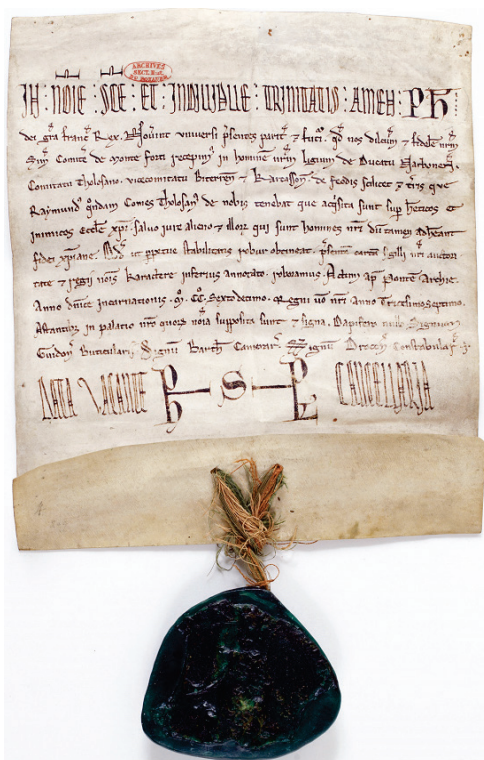 IN NOIE SCE ET INDIVIDUE TRINITATIS AMEN PH
ARCHIVES
dei gra franc Rex. Noverint universi psentes parit & futi. qd nos dilectum & fidelem nrm
Sim Comite de monte forti recepim in hominē nrm ligium de Ducatu Narbone.
Comitatu Tholosano. vicecomitatu Biterren & Carcasson. de feodis scilicet & tris que
Raymund qndam Comes Tholosan de nobis tenebat que acqisita sunt sup hereticos &
inimicos Eccle xpi. salvo jure alieno & illor qui sunt homines nri dū tamen adhereant
fidei xpiane. Qd ut ppetue stabilitatis robur obtineat. psentē cartā sigilli nri auctori
tate & regii nois Karactere inferius annotato. roboramus. Actum ap Ponte Archie.
Anno dnice incarnationis. M. CC. Sextodecimo. Regni vo nri Anno Tricesimoseptimo.
Astantibz in palatio nro quorz noia supposita sunt & signa. Dapifero nullo. Signum
Guidon Buticularii. Signū Barth Camerar. Signum Drocon Constabularii.
DATA VACANTE PH S PL CANCELLARIA